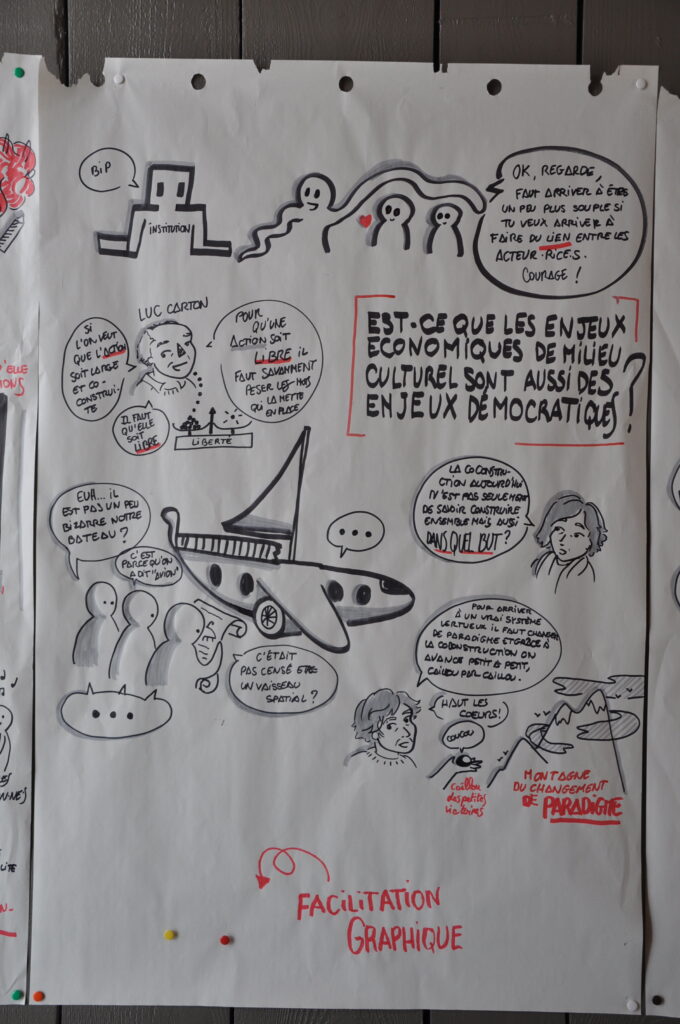 BIP
INSTITUTION
OK, REGARDE,
FAUT ARRIVER À ÊTRE
UN PEU PLUS SOUPLE SI
TU VEUX ARRIVER À
FAIRE DU LIEN ENTRE LES
ACTEUR·RICE·S.
COURAGE !
LUC CARTON
SI
L'ON VEUT
QUE L'ACTION
SOIT LARGE
ET CO-
CONSTRUITE
IL FAUT
QU'ELLE
SOIT
LIBRE
POUR
QU'UNE
ACTION SOIT
LIBRE IL
FAUT SAVAMMENT
PESER LES MOTS
QUI LA METTE
EN PLACE
LIBERTÉ
EST-CE QUE LES ENJEUX
ECONOMIQUES DE MILIEU
CULTUREL SONT AUSSI DES
ENJEUX DÉMOCRATIQUES ?
EUH... IL
EST PAS UN PEU
BIZARRE NOTRE
BATEAU ?
C'EST
PARCE QU'ON
A DIT "AVION"
...
C'ÉTAIT
PAS CENSÉ ETRE
UN VAISSEAU
SPATIAL ?
...
LA COCONSTRU-
CTION AUJOURD'HUI
N'EST PAS SEULEMENT
DE SAVOIR CONSTRUIRE
ENSEMBLE MAIS AUSSI
DANS QUEL BUT ?
POUR ARRIVER
À UN VRAI SYSTÈME
VERTUEUX IL FAUT CHANGER
DE PARADIGME ET GRÂCE À
LA COCONSTRUCTION ON
AVANCE PETIT À PETIT,
CAILLOU PAR CAILLOU.
HAUT LES
COEURS !
COUCOU
Caillou
des petites
victoires
MONTAGNE
DU CHANGEMENT
DE PARADIGME
FACILITATION
GRAPHIQUE